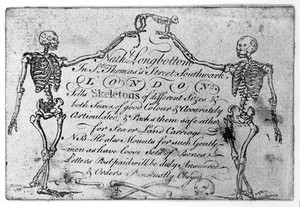 Nath. Longbottom
In St. Thomas's Street Southwark,
LONDON,
Sells Skeletons of different Sizes &
both Sexes of good Colour & Accurately
Articulated, & Packs them safe either
for Sea or Land Carriage.
N.B. He also Mounts for such Gentle-
men as have loose Setts of Bones.
Letters Post paid will be duly Answered
& Orders Punctually Obey'd.